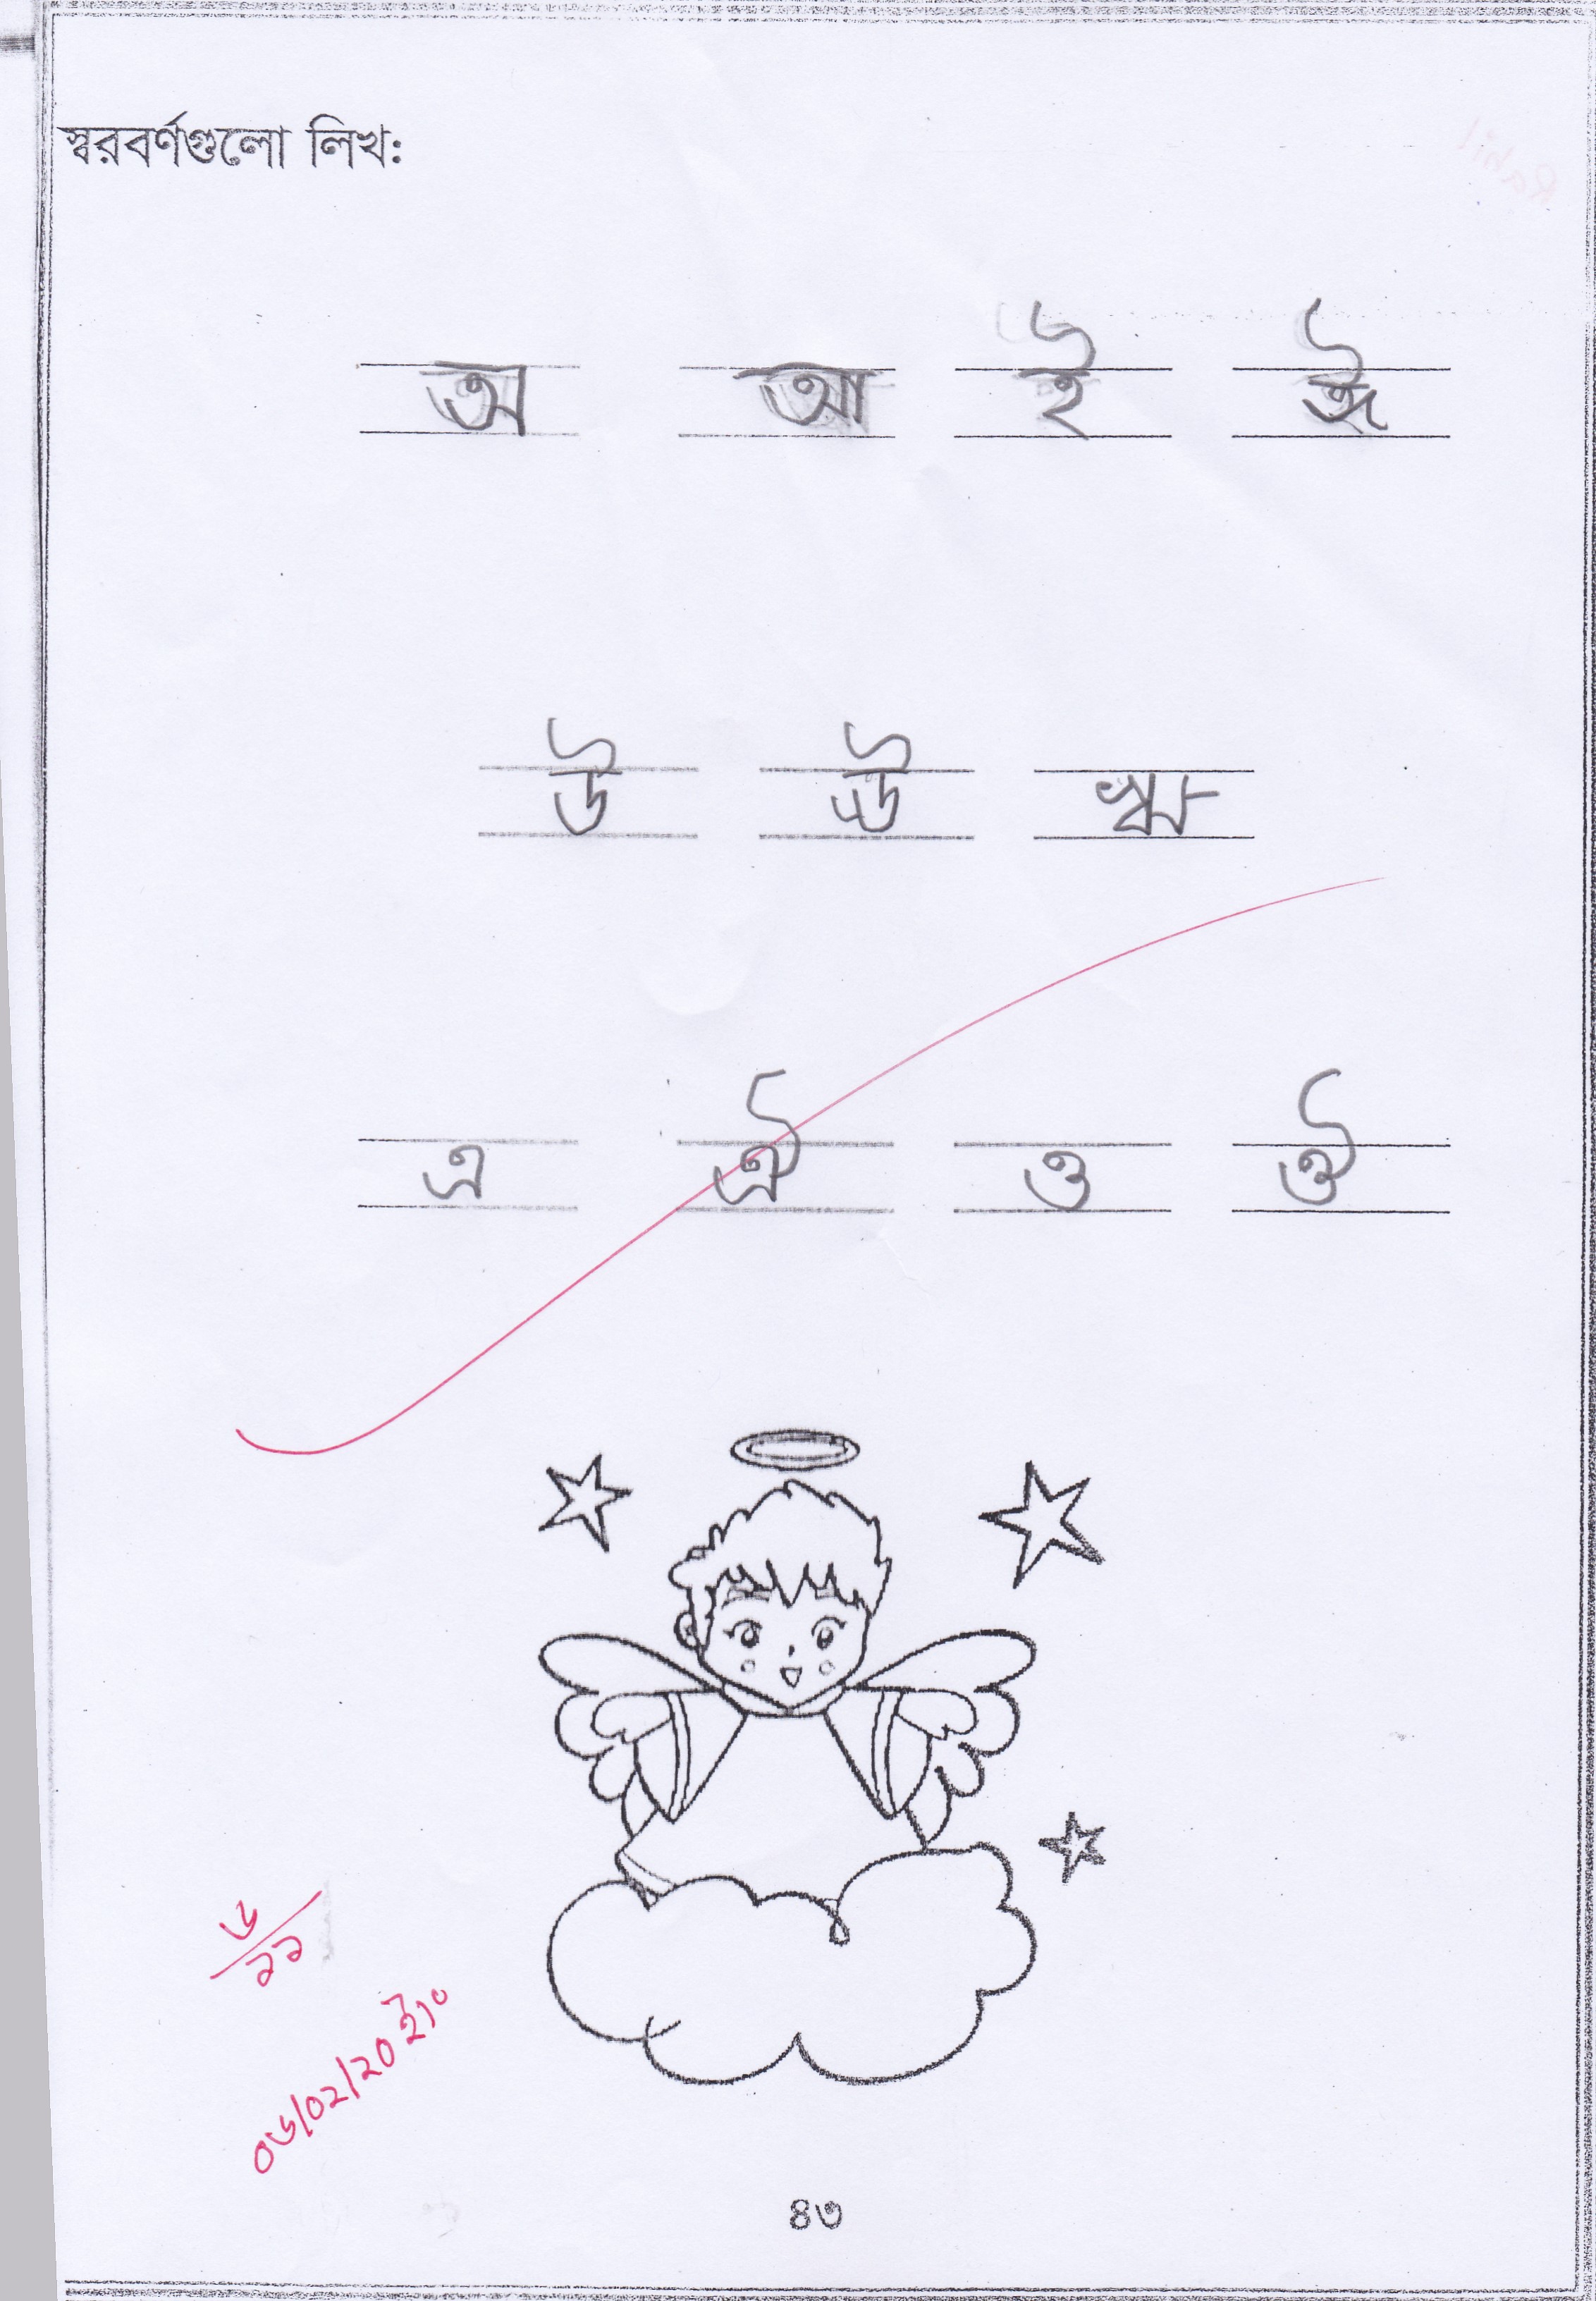 স্বরবর্ণগুলো লিখ:
অ আ ই ঈ
উ ঊ ঋ
এ ঐ ও ঔ
৬/১১
০৬/০২/২০ ইং
৪৩